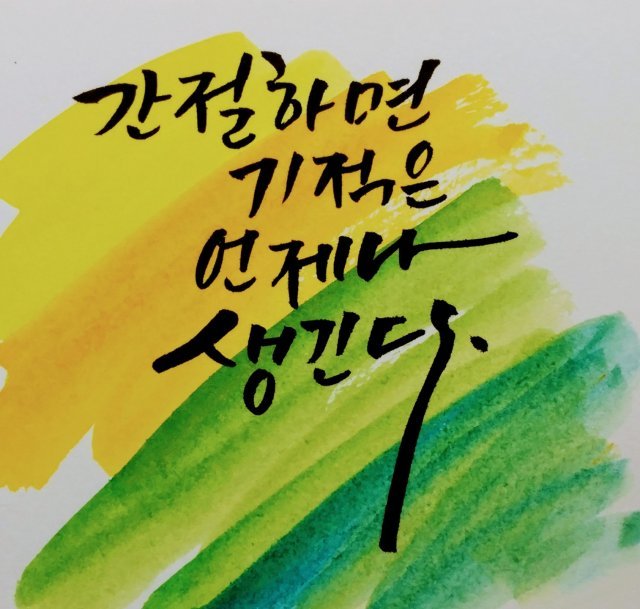 간절하면
기적은
언제나
생긴다.